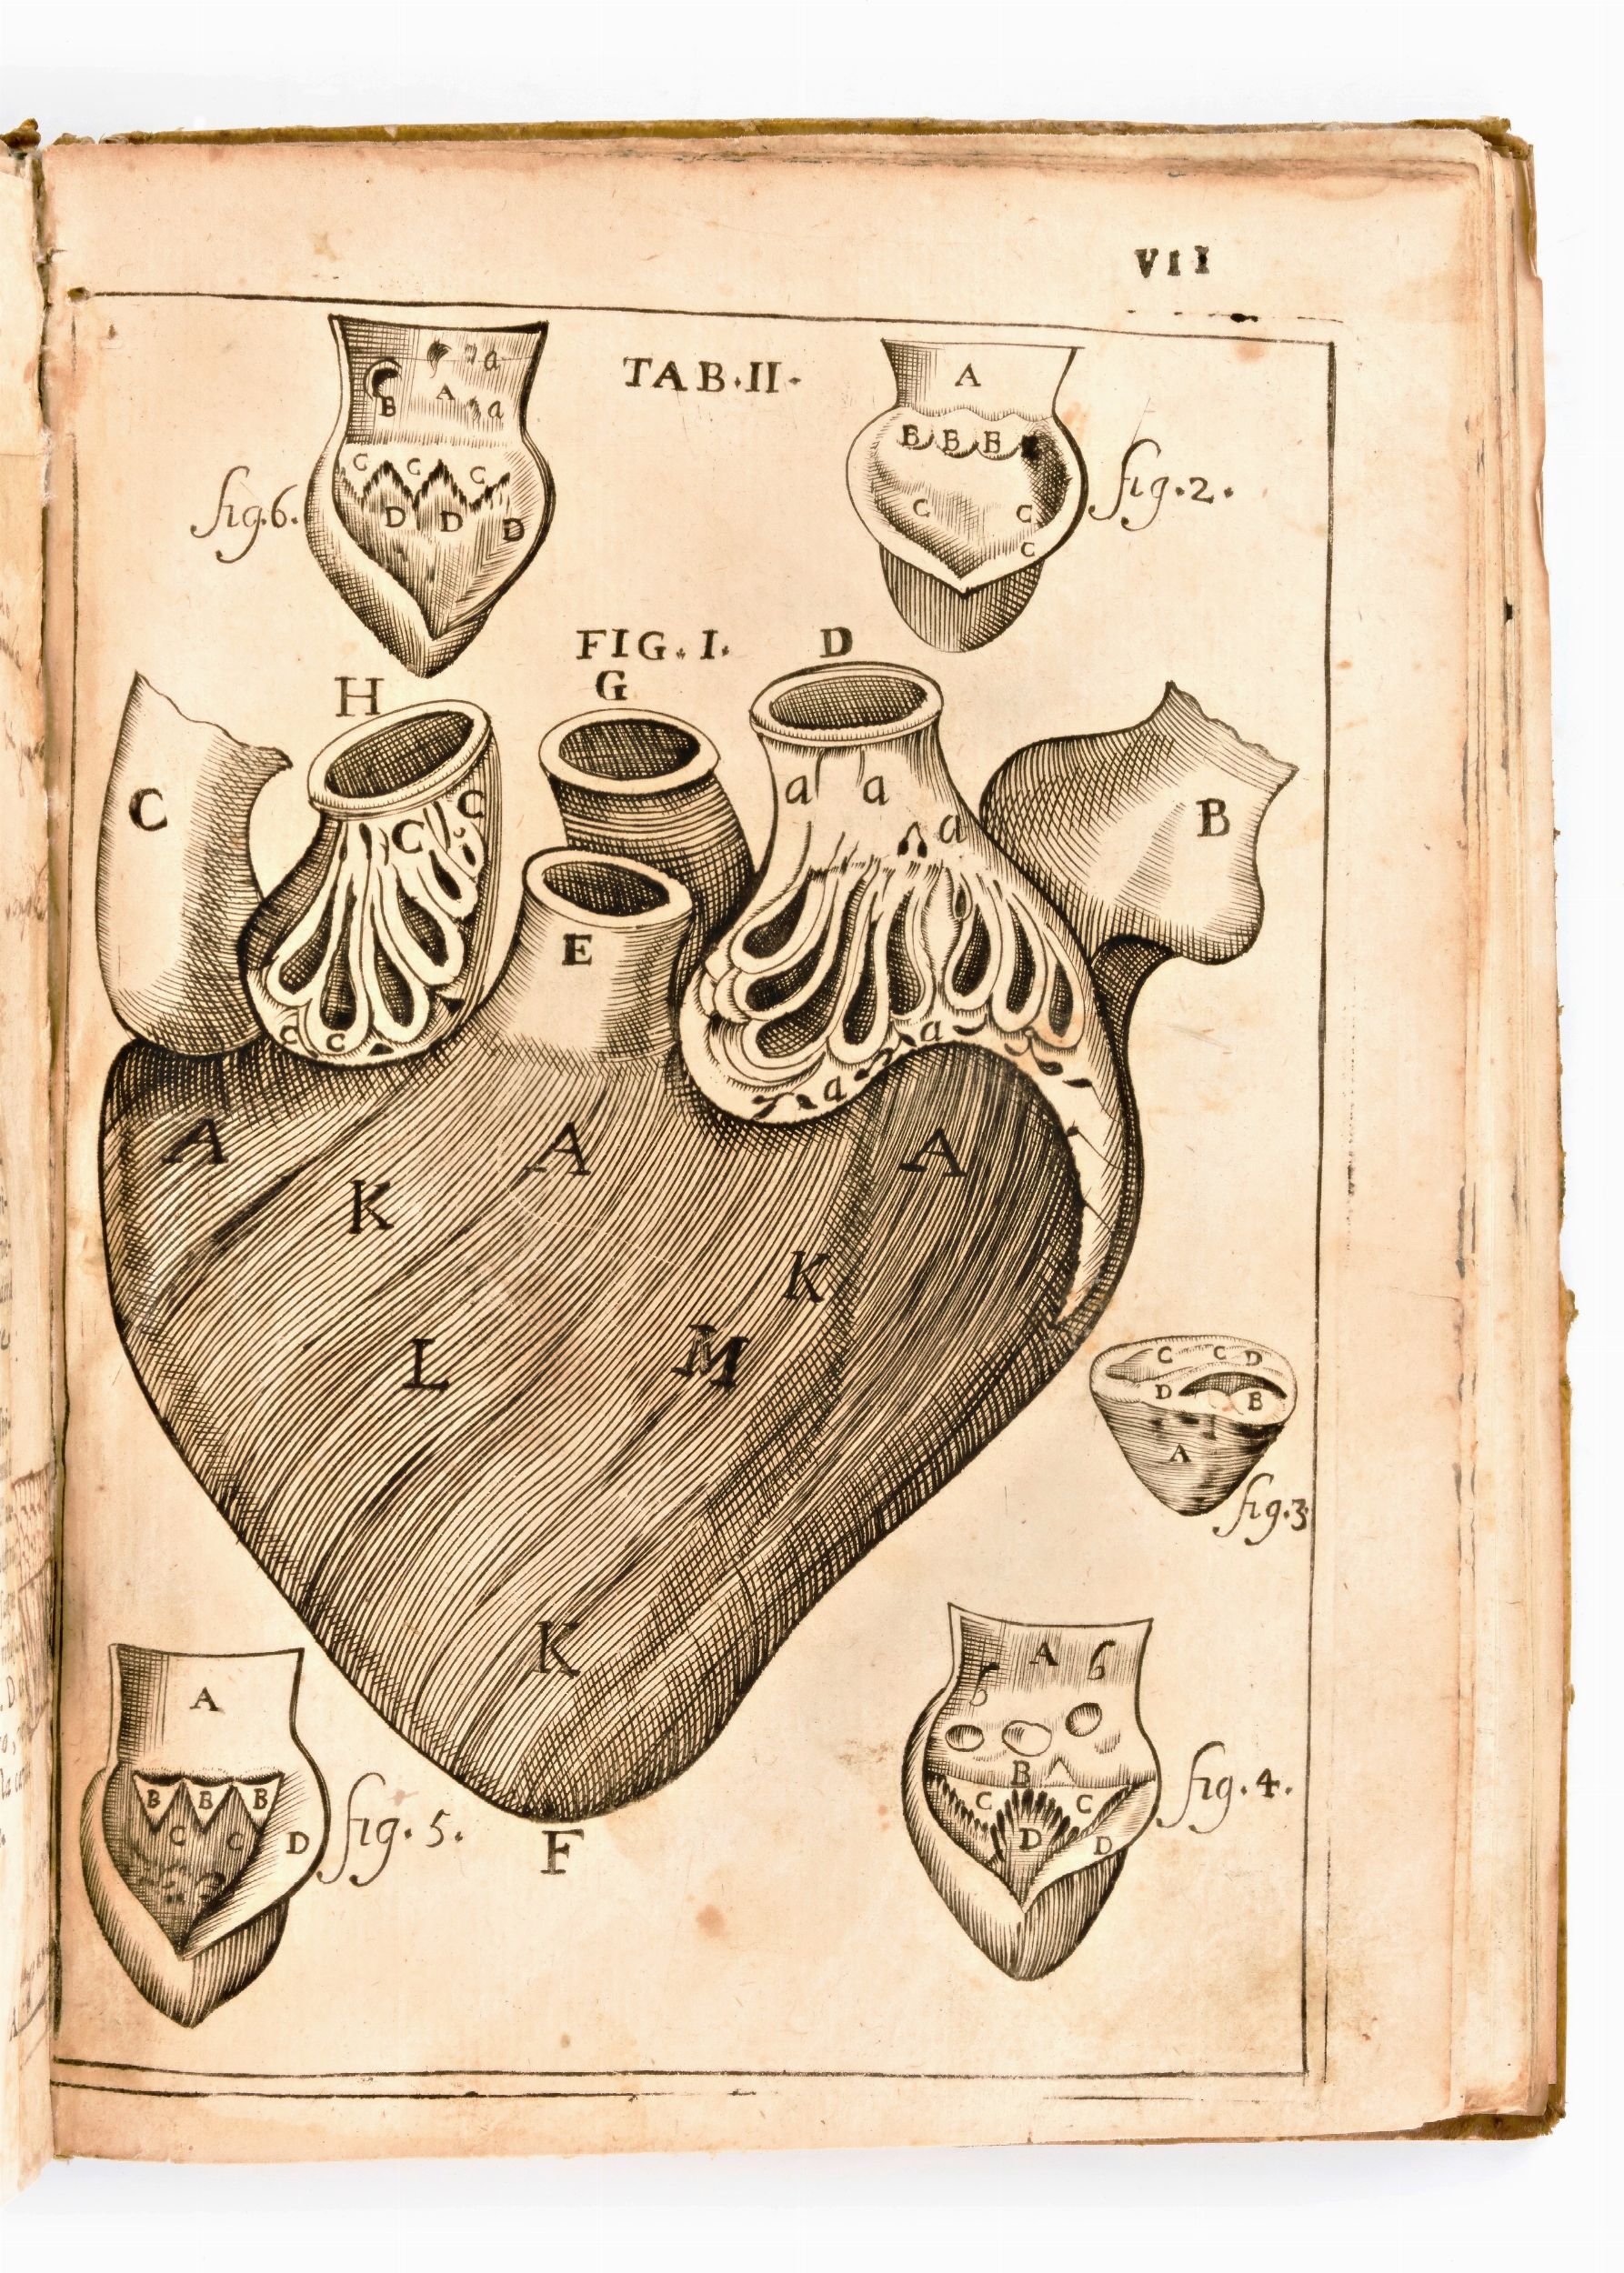 VII
TAB.II.
a
B A a
C C C
D D D
fig.6.
A
B B B
C C
C
fig.2.
FIG. I.
H G D
C
C C
C C
E
a a
a
a
a
B
A A A
K
K
L M
K
F
C C D
D B
A
fig.3
A
B B B
C C D
fig. 5.
A 6
B
C C
D D
fig. 4.